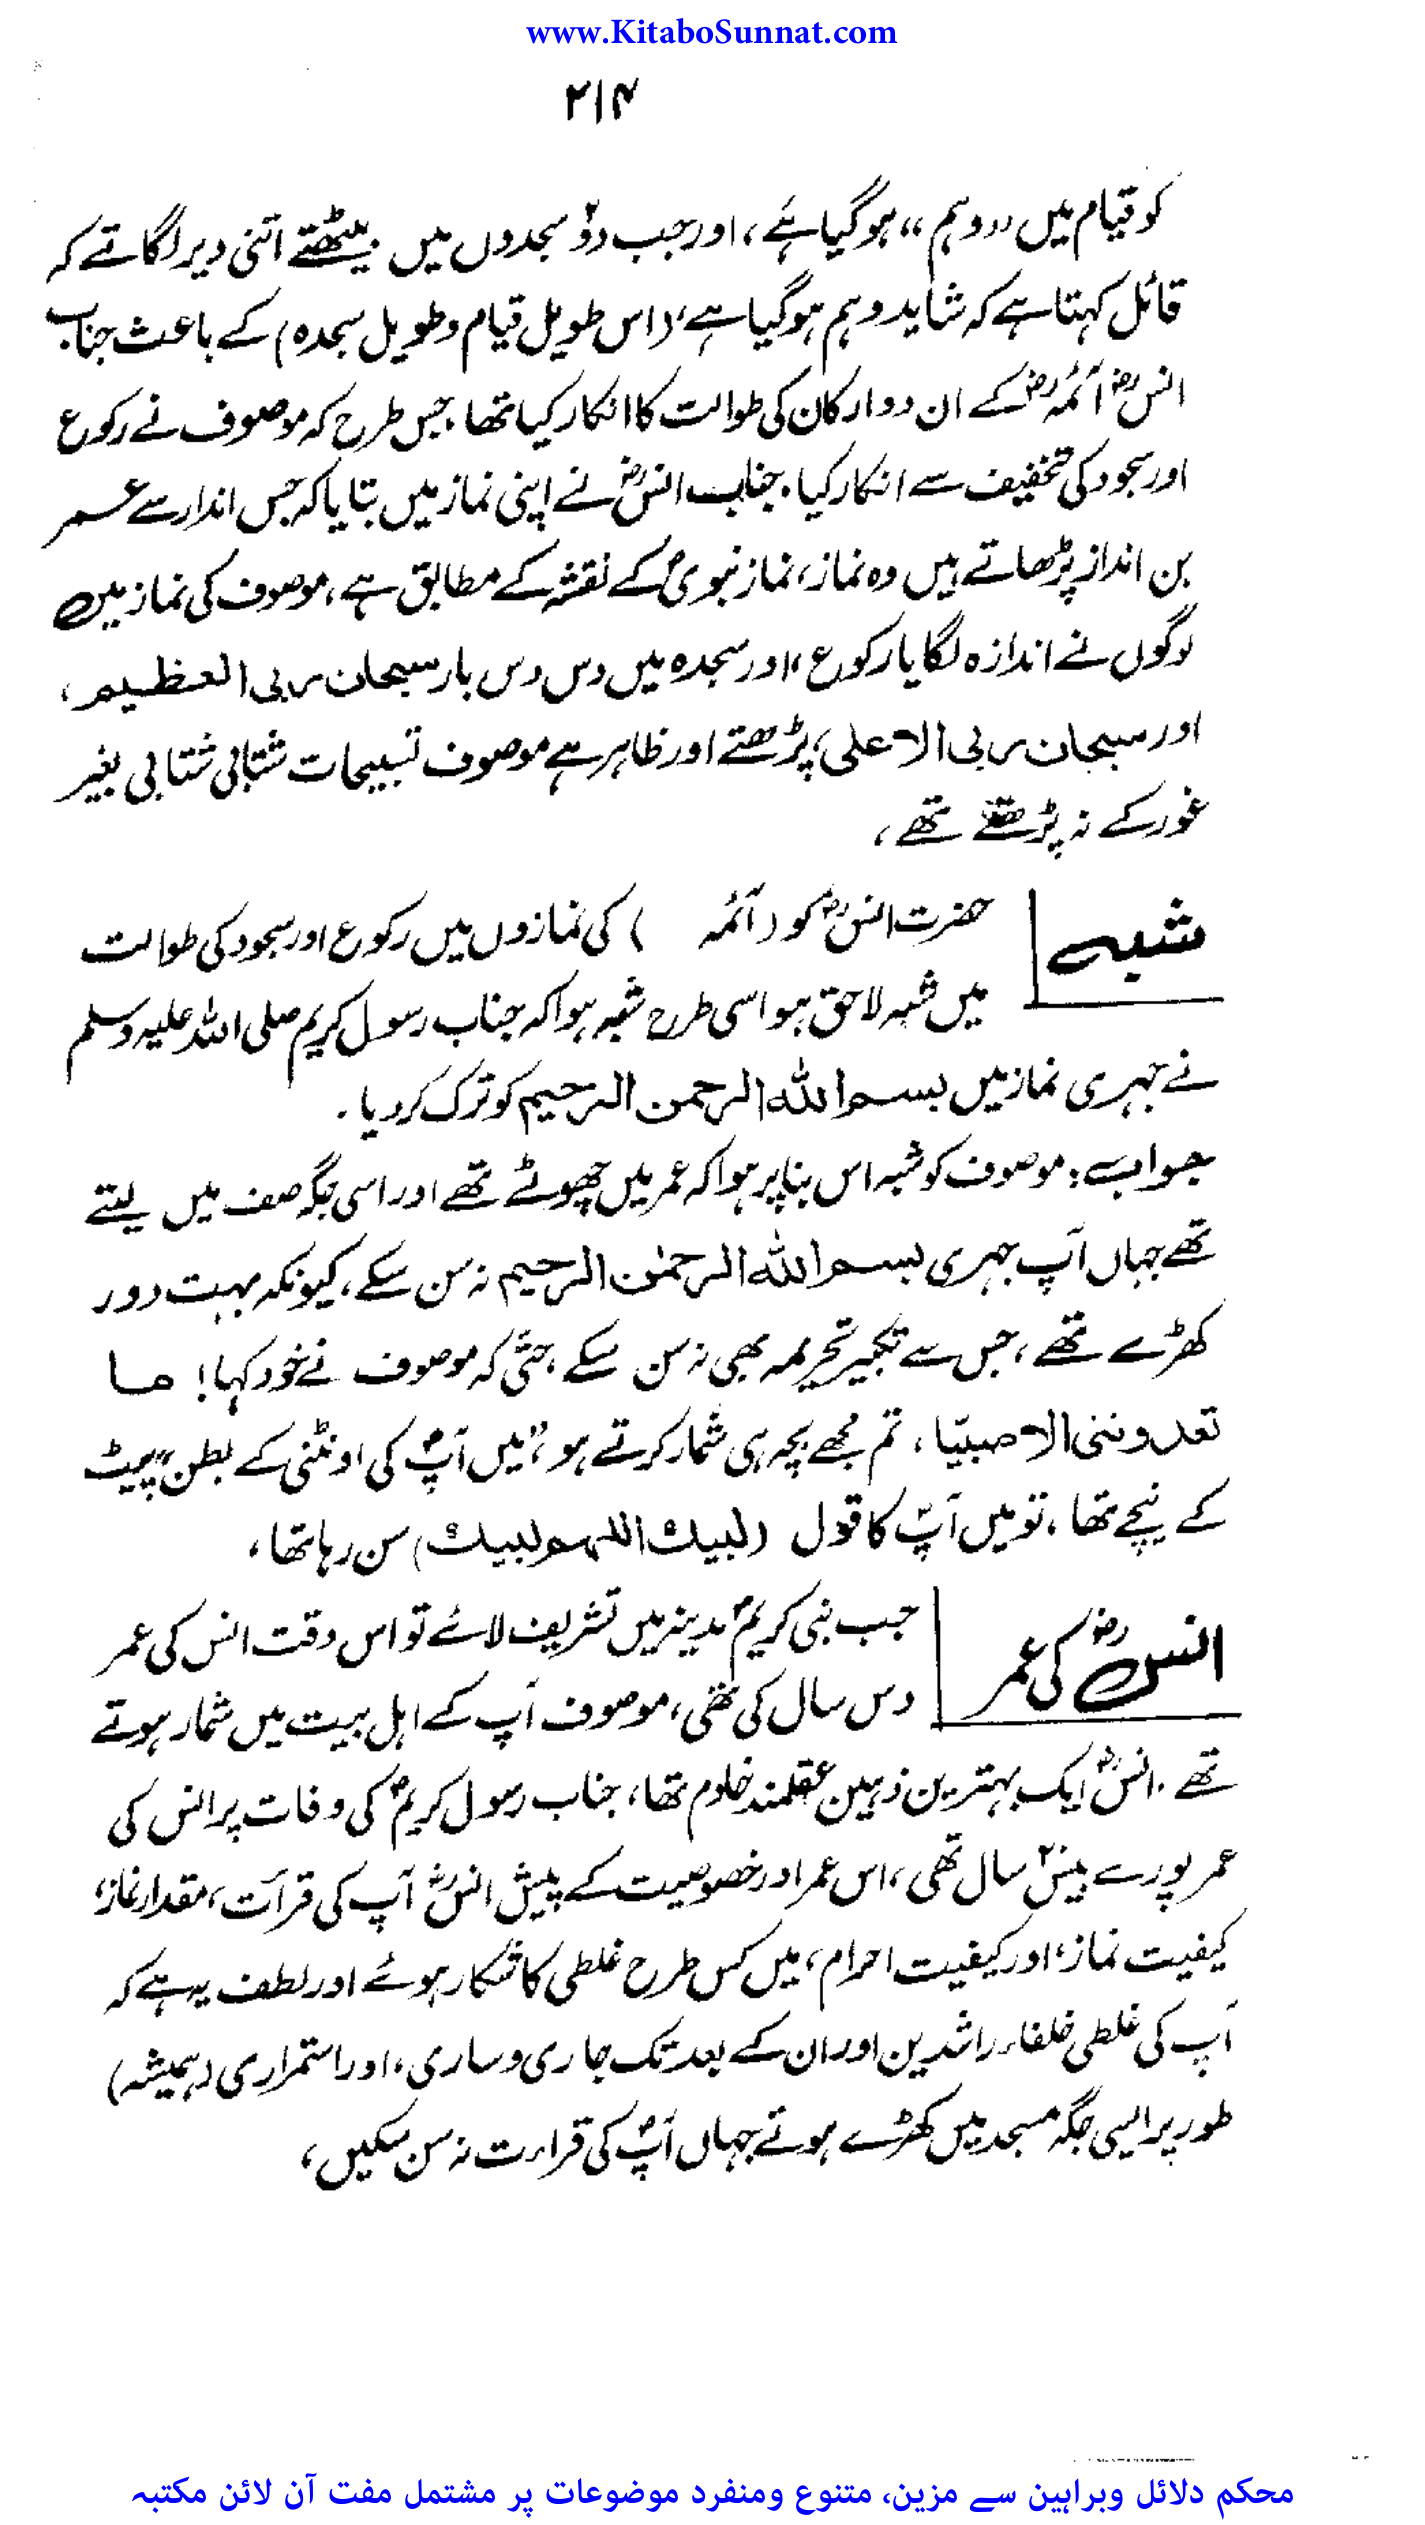 www.KitaboSunnat.com
۲۱۴
کو قیام میں ،،وہم،، ہو گیا ہے، اور جب دو۲ سجدوں میں بیٹھتے اتنی دیر لگاتے کہ
قائل کہتا ہے کہ شاید وہم ہو گیا ہے، (اس طویل قیام و طویل سجدہ) کے باعث جناب
انسؓ آئمہؓ کے ان دو ارکان کی طوالت کا انکار کیا تھا، جس طرح کہ موصوف نے رکوع
اور سجود کی تخفیف سے انکار کیا۔ جناب انسؓ نے اپنی نماز میں بتایا کہ جس انداز سے عمر
بن انداز پڑھاتے ہیں وہ نماز، نماز نبویؐ کے نقشہ کے مطابق ہے، موصوف کی نماز میں
لوگوں نے اندازہ لگایا رکوع، اور سجدہ میں دس دس بار سبحان ربی العظیم،
اور سبحان ربی الاعلی، پڑھتے اور ظاہر ہے موصوف تسبیحات شتابی شتابی بغیر
غور کے نہ پڑھتے تھے،
شبہ
حضرت انسؓ کو (آئمہ ) کی نمازوں میں رکوع اور سجود کی طوالت
میں شبہ لاحق ہوا اسی طرح شبہ ہوا کہ جناب رسول کریم صلی اللہ علیہ وسلم
نے جہری نماز میں بسم اللہ الرحمن الرحیم کو ترک کر دیا۔
جواب: موصوف کو شبہ اس بنا پر ہوا کہ عمر میں چھوٹے تھے اور اسی جگہ صف میں لیتے
تھے جہاں آپ جہری بسم اللہ الرحمٰن الرحیم نہ سن سکے، کیونکہ بہت دور
کھڑے تھے، جس سے تکبیر تحریمہ بھی نہ سن سکے، حتیٰ کہ موصوف نے خود کہا! ما
تعدوننی الا صبیّا، تم مجھے بچہ ہی شمار کرتے ہو،” میں آپؐ کی اونٹنی کے بطن “پیٹ
کے نیچے تھا، تو میں آپؐ کا قول (لبیك اللہم لبیك) سن رہا تھا،
انسؓ کی عمر
جب نبی کریمؐ مدینہ میں تشریف لائے تو اس وقت انس کی عمر
دس سال کی تھی، موصوف آپ کے اہل بیت میں شمار ہوتے
تھے۔ انسؓ ایک بہترین ذہین عقلمند خادم تھا، جناب رسول کریمؐ کی وفات پر انس کی
عمر پورے بیس۲۰ سال تھی، اس عمر اور خصوصیت کے پیش انسؓ آپ کی قرآت، مقدار نماز،
کیفیت نماز، اور کیفیت احرام، میں کس طرح غلطی کا شکار ہوئے اور لطف یہ ہے کہ
آپ کی غلطی خلفاء راشدین اور ان کے بعد تک جاری و ساری، اور استمراری (ہمیشہ)
طور پر ایسی جگہ مسجد میں کھڑے ہوتے جہاں آپؐ کی قراءت نہ سن سکیں،
محکم دلائل وبراہین سے مزین، متنوع ومنفرد موضوعات پر مشتمل مفت آن لائن مکتبہ